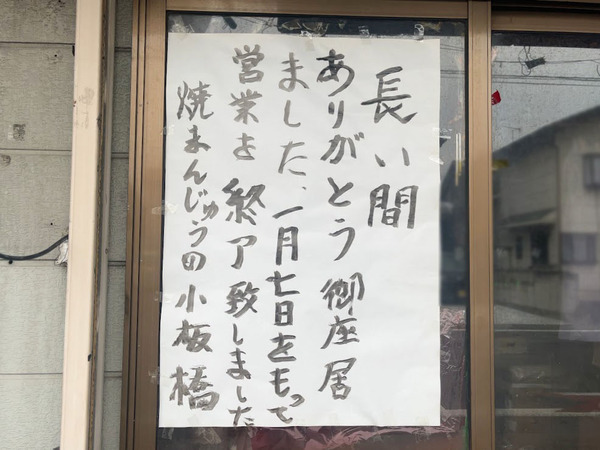 長い間
ありがとう御座居
ました、一月七日をもって
営業を終了致しました
焼まんじゅうの小板橋